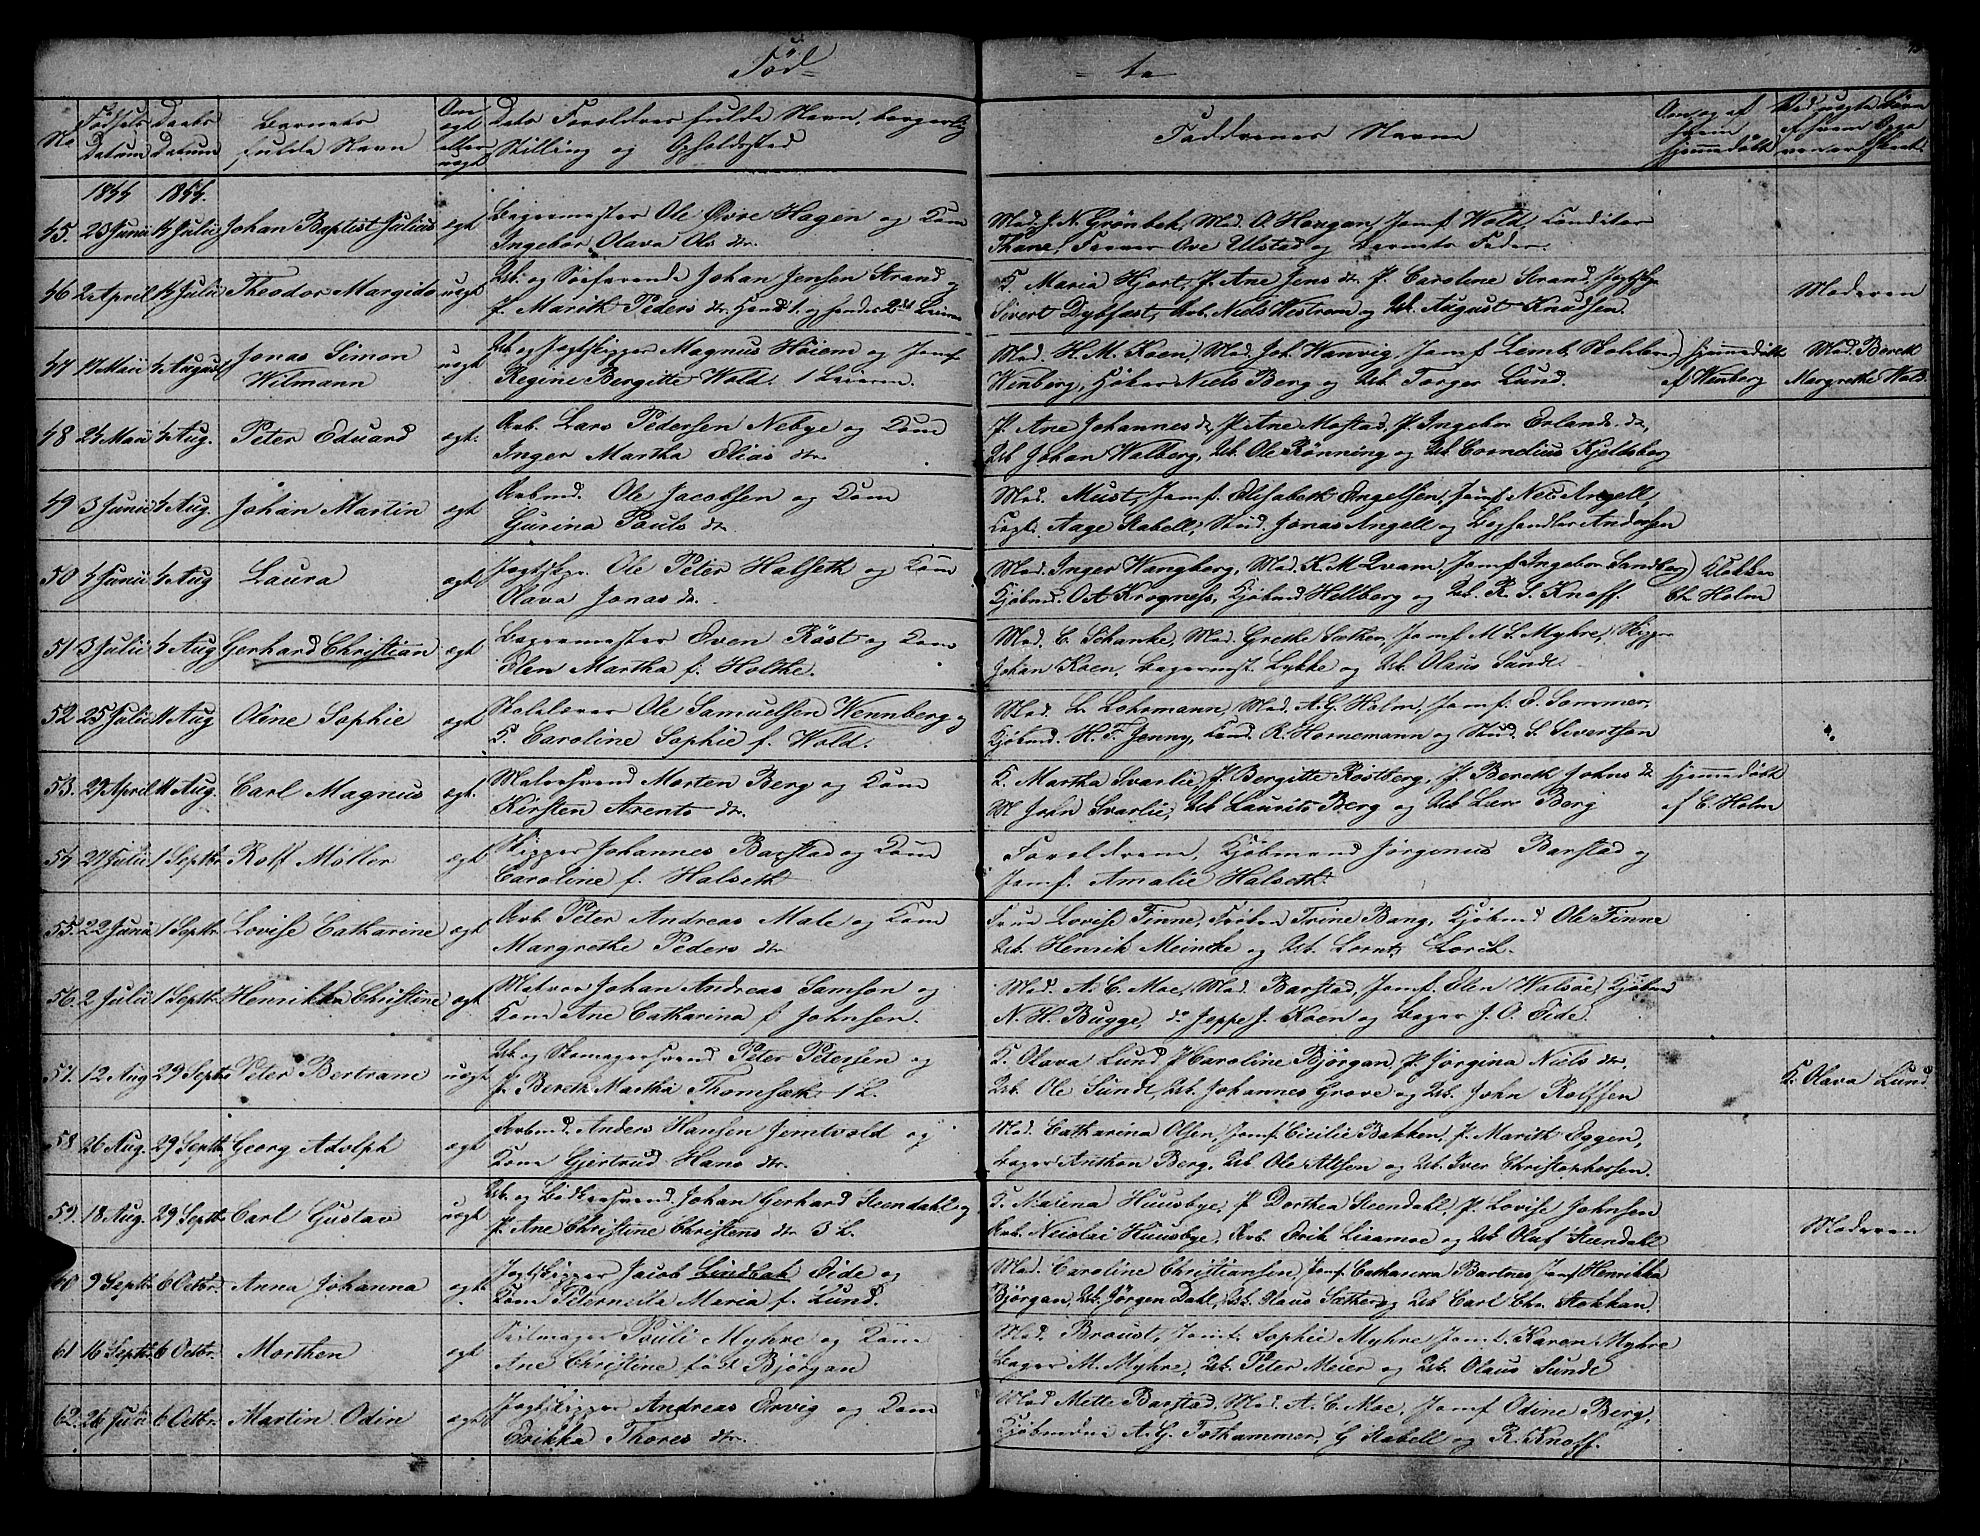 Fød=
=te
No
Fødsels Datum
Daabs Datum
Barnets fulde Navn
Om ægte eller uægte
Dets Forældres fulde Navn, borgerlig Stilling og Opholdssted
Faddernes Navne
Om og af hvem hjemmedøbt
1844 1844.
45. 23 Junii 14 Julii Johan Baptist Julius ægt
Bagermester Ole Øvre Hagen og Kone
Ingebor Olava Ols dr.
Mad. J. N. Grønbek, Mad. O. Hougan, Jomf. Wold, Conditor
Thane, Farver Ove Ulstad og Barnets Fader.
46 2 April 14 Julii Theodor Margido uægt
Ub. og Søefarende Johan Jensen Strand og
P. Marith Peders dr. Hands 1. og hendes 2det Leierm.
K. Maria Hjort, P. Ane Jens dr. P. Caroline Strand,
Sivert Dybfast, Arb. Niels Westrem og Ub. August Knudsen.
Moderen
47 17 Maii 4 August Jonas Simon
Wilmann
uægt
Ub. og Jagtskipper Magnus Høiem og Jomf.
Regine Bergitte Wold. 1 Leierm.
Mad. H. M. Koen, Mad. Joh. Wanvig, Jomf. Lemb, Skolelærer
Wenberg, Høker Niels Berg og Ub. Torger Lund.
hjemmedøbt
af Wenberg
Mad. Bereth
Margrethe Wold.
48 24 Maii 4 Aug. Peter Eduard ægt.
Arb. Lars Pedersen Nebye og Kone
Inger Martha Elias dr.
P. Ane Johannes dr, P. Ane Mostad, P. Ingebor Erlands dr,
Ub. Johan Walberg, Ub. Ole Rønning og Ub. Cornelius Kjeldsberg
49 3 Junii 4 Aug. Johan Martin ægt
Arbmd. Ole Jacobsen og Kone
Gurina Pauls dr.
Mad. Must, Jomf. Elisabeth Engelsen, Jomf. Angell,
Capt. Aage Kabell, Stud. Jonas Angell og Boghandler Andersen
50 4 Junii 4 Aug Laura ægt
Jagtskpr. Ole Peter Halseth og Kone
Olava Jonas dr.
Mad. Inger Wangberg, Mad. K. M. Qvam, Jomf. Ingebor Sandberg
Kjøbmd. O. A. Krogness, Kjøbmd Hellberg og Ub. R. S. Knoff.
Klokker
Chr Holm
51 3 Julii 4 Aug Gerhard Christian ægt
Bagermester Even Røst og Kone
Elen Martha f. Holthe.
Mad. C. Schanke, Mad. Grethe Sather, Jomf. M. S. Myhre, Skipper
Johan Koen, Bagermst. Lykke og Ub. Olaus Sunde.
52 25 Julii 11 Aug Oline Sophie ægt
Skolelærer Ole Samuelsen Wennberg og
K. Caroline Sophie f. Wold.
Mad. L. Lohrmann, Mad. A. G. Holm, Jomf. E. Sommer,
Kjøbmd. H. F. Jenny, Cand. R. Hornemann og Stud. S. Sivertsen
53. 29 April 11 Aug. Carl Magnus ægt.
Malersvend Morten Berg og Kone
Kirsten Arents dr.
K. Martha Svarlie, P. Bergitte Røstberg, P. Bereth Johns dr
M John Svarlie, Ub Laurits Berg og Ub Berg
hjemmedøbt
af C. Holm
54 27 Julii 1 Septbr. Rolf Møller ægt
Skipper Johannes Barstad og Kone
Caroline f. Halseth
Forældrene, Kjøbmand Jørgenus Barstad og
Jomf. Amalie Halseth.
55. 22 Junii 1 Septbr. Lovise Catharine ægt
Arb. Peter Andreas Male og Kone
Margrethe Peders dr.
Frue Lovise Finne, Frøken Trine Bang, Kjøbmd Ole Finne
Ub. Henrik Meincke og Ub. Lornts Lorck.
56. 2 Julii 1 Septbr. Henrikka Christine ægt
Matros Johan Andreas Samson og
Kone Ane Catharina f. Johnsen.
Mad. A. C. Moe, Mad. Barstad, Jomf. Elen Walsøe, Kjøbmd
N. H. Bugge, do Jeppe J. Koen og Bager J. O. Eide.
57. 12 Aug 29 Septbr Peter Bertram uægt
Ub. og Skomagersvend Peter Petersen og
P. Bereth Martha Thomsæth. 1 L.
K. Olava Lund, P. Caroline Bjørgan, P. Jørgina Niels dr.,
Ub. Ole Sundt, Ub. Johannes Grove og Ub. John Rolfsen
K. Olava Lund.
58. 26 Aug. 29 Septbr. Georg Adolph ægt
Arbmd. Anders Hansen Jemtvold og
Kone Gjertrud Hans dr.
Mad. Catharina Olsen, Jomf. Cicilie Bakken, P. Marith Eggen,
Bager Anthon Berg, Ub. Ole Altsen og Ub. Iver Christophersen.
59. 18 Aug. 29 Septbr. Carl Gustav uægt
Ub. og Bødkersvend Johan Gerhard Steendahl og
P. Ane Christine Christens dr. 3 L.
K. Malena Huusbye, P. Dorthea Steendahl, P. Lovise Johnsen
Arb. Nicolai Huusbye, Arb. Erik Lisamoe og Ub Oluf Steendahl
Moderen
60 9 Septbr. 6 Octbr. Anna Johanna ægt.
Jagtskipper Jacob Lindbak Eide og
Kone Peternella Maria f. Lund.
Mad. Caroline Christiansen, Jomf. Catharina Bartnes, Jomf. Henrikka
Bjørgan, Ub. Jørgen Dahl, Ub. Olaus Sæther og Ub Carl Chr. Stokkan.
61 16 Septbr. 6 Octbr. Morthen ægt
Seilmager Pauli Myhre og Kone
Ane Christine født Bjørgan
Mad. Broust, Jomf. Sophie Myhre, Jomf. Karen Myhre
Bager M. Myhre, Ub. Peter Meier og Ub. Olaus Sunde
62. 26 Julii 6 Octbr. Martin Odin ægt
Jagtskipper Andreas Ervig og Kone
Erikka Thores dr.
Mad Mette Barstad, Mad. A. C. Moe, Jomf Odine Berg,
Kjøbmdne A. G. Tøthammer, G Kabell og R. Knoff.